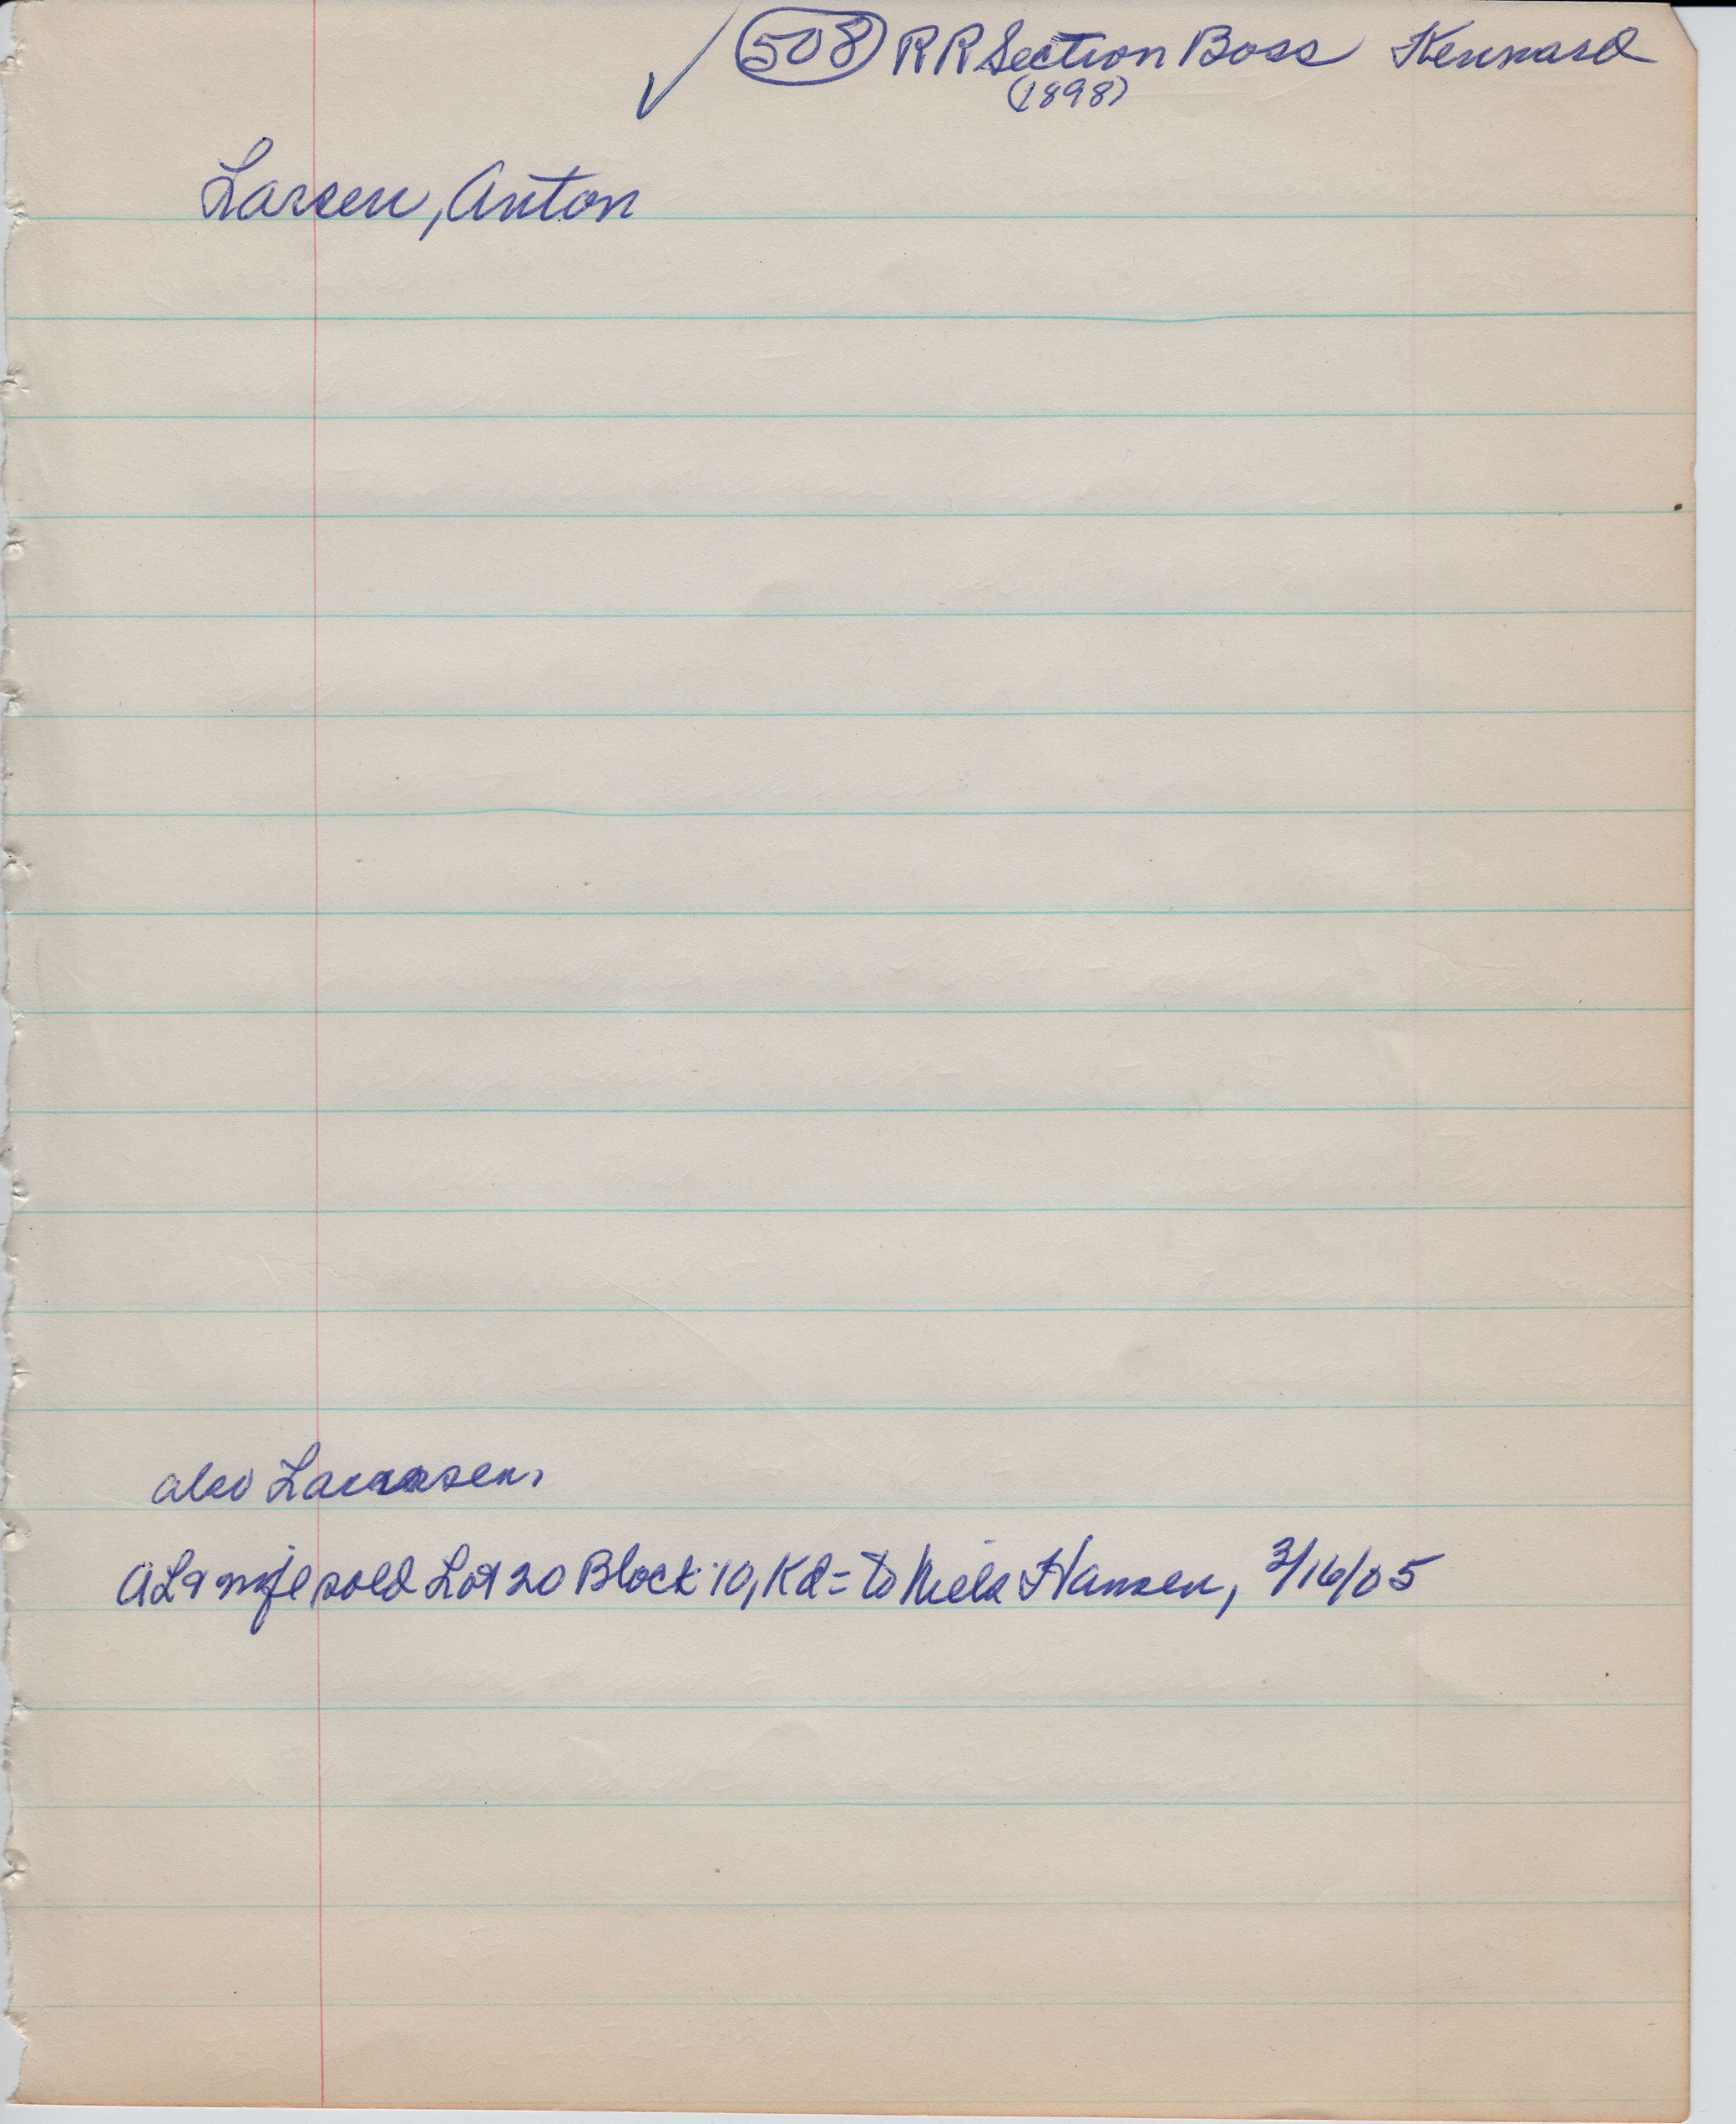 ✓ 508 RR Section Boss Kennard
(1898)
Larsen, Anton
also
AL & wife sold Lot 20 Block 10, Kd = to Niels Hansen, 3/16/05